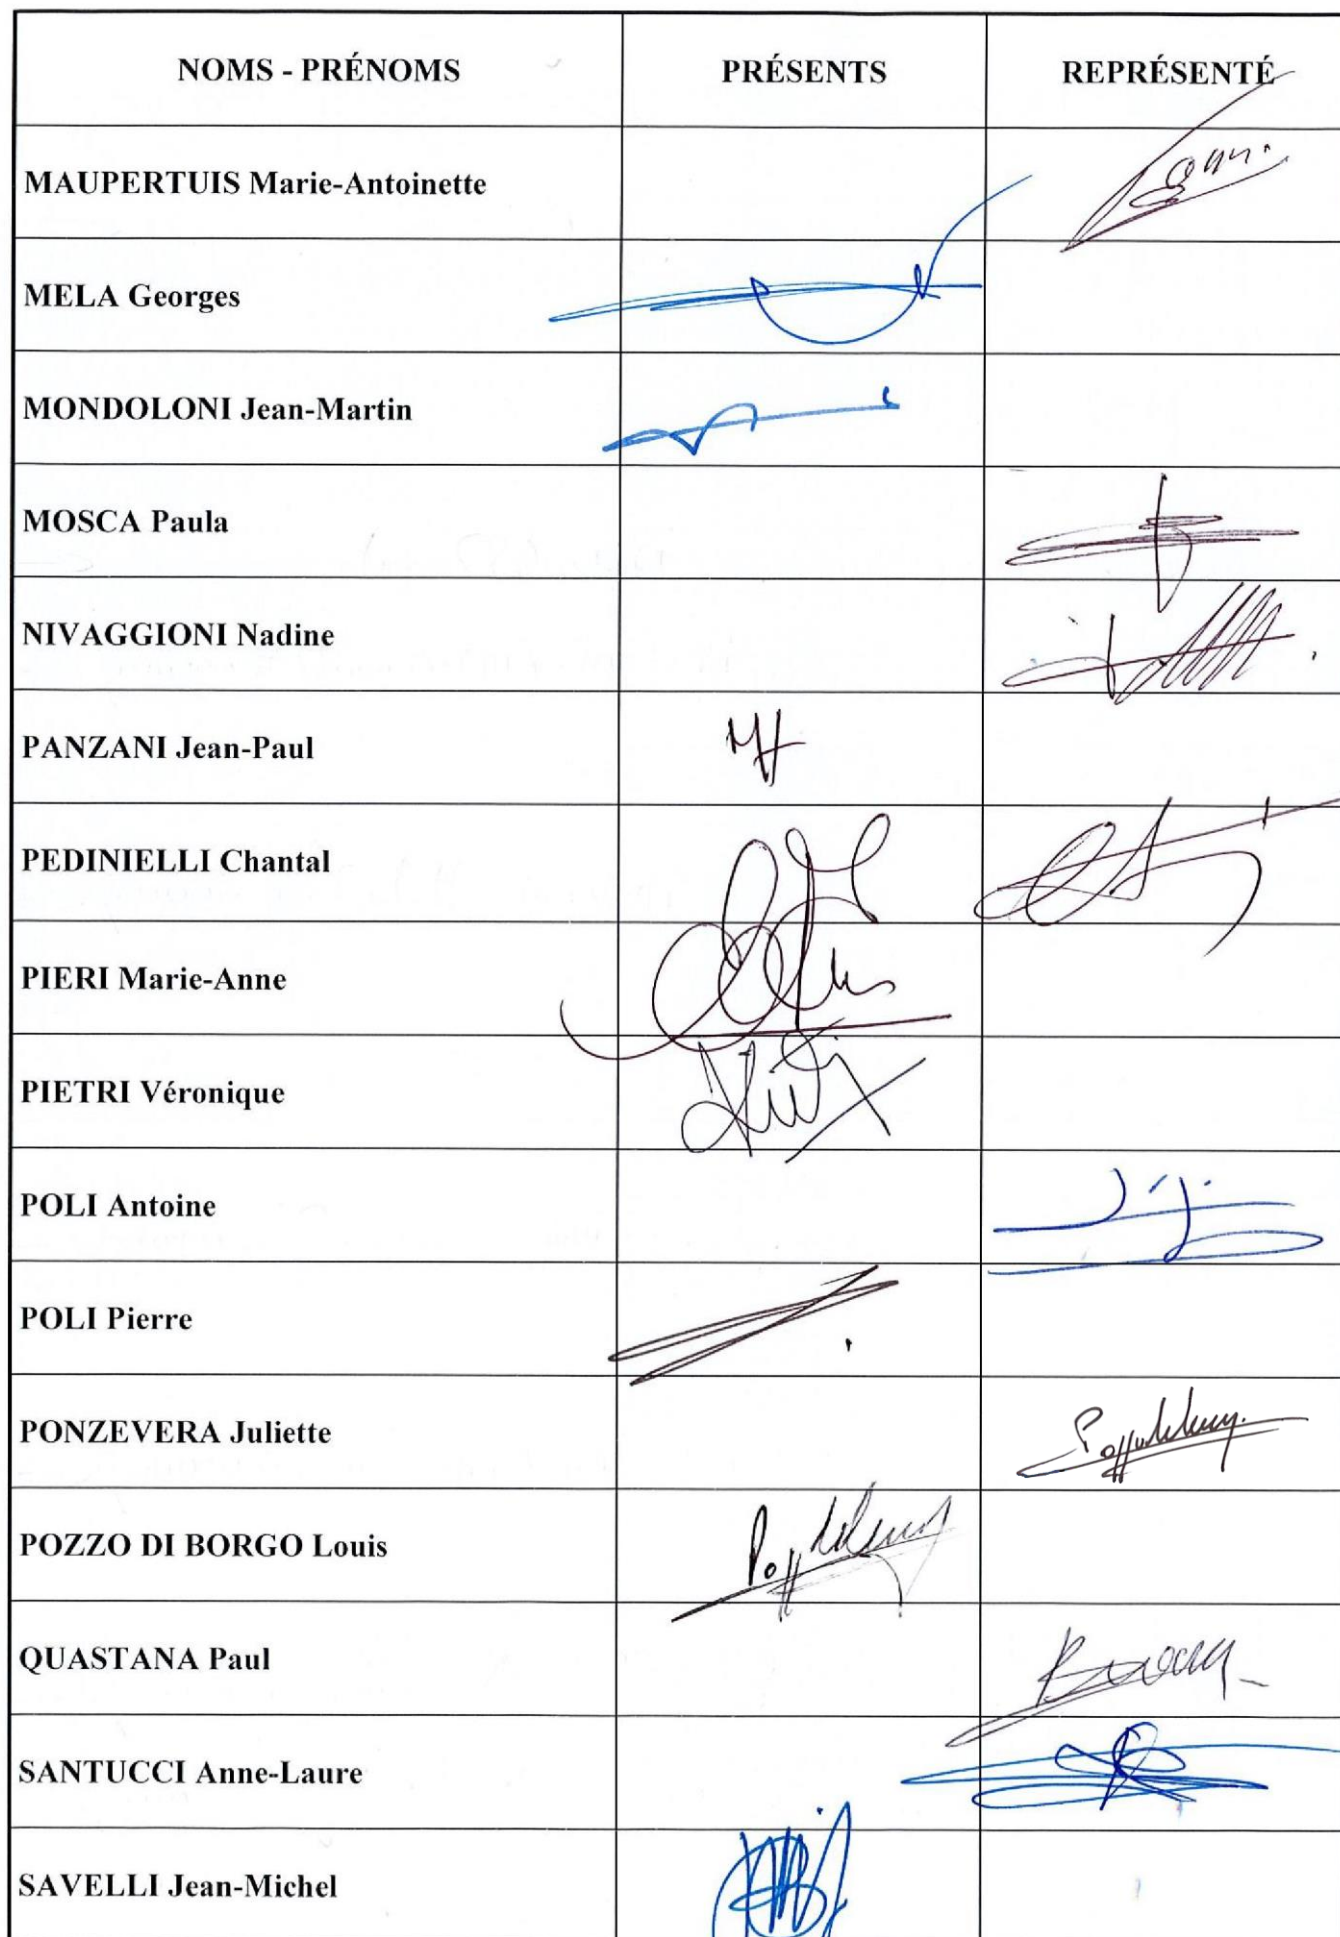 NOMS - PRÉNOMS PRÉSENTS REPRÉSENTÉ
MAUPERTUIS Marie-Antoinette
MELA Georges
MONDOLONI Jean-Martin
MOSCA Paula
NIVAGGIONI Nadine
PANZANI Jean-Paul
PEDINIELLI Chantal
PIERI Marie-Anne
PIETRI Véronique
POLI Antoine
POLI Pierre
PONZEVERA Juliette
POZZO DI BORGO Louis
QUASTANA Paul
SANTUCCI Anne-Laure
SAVELLI Jean-Michel